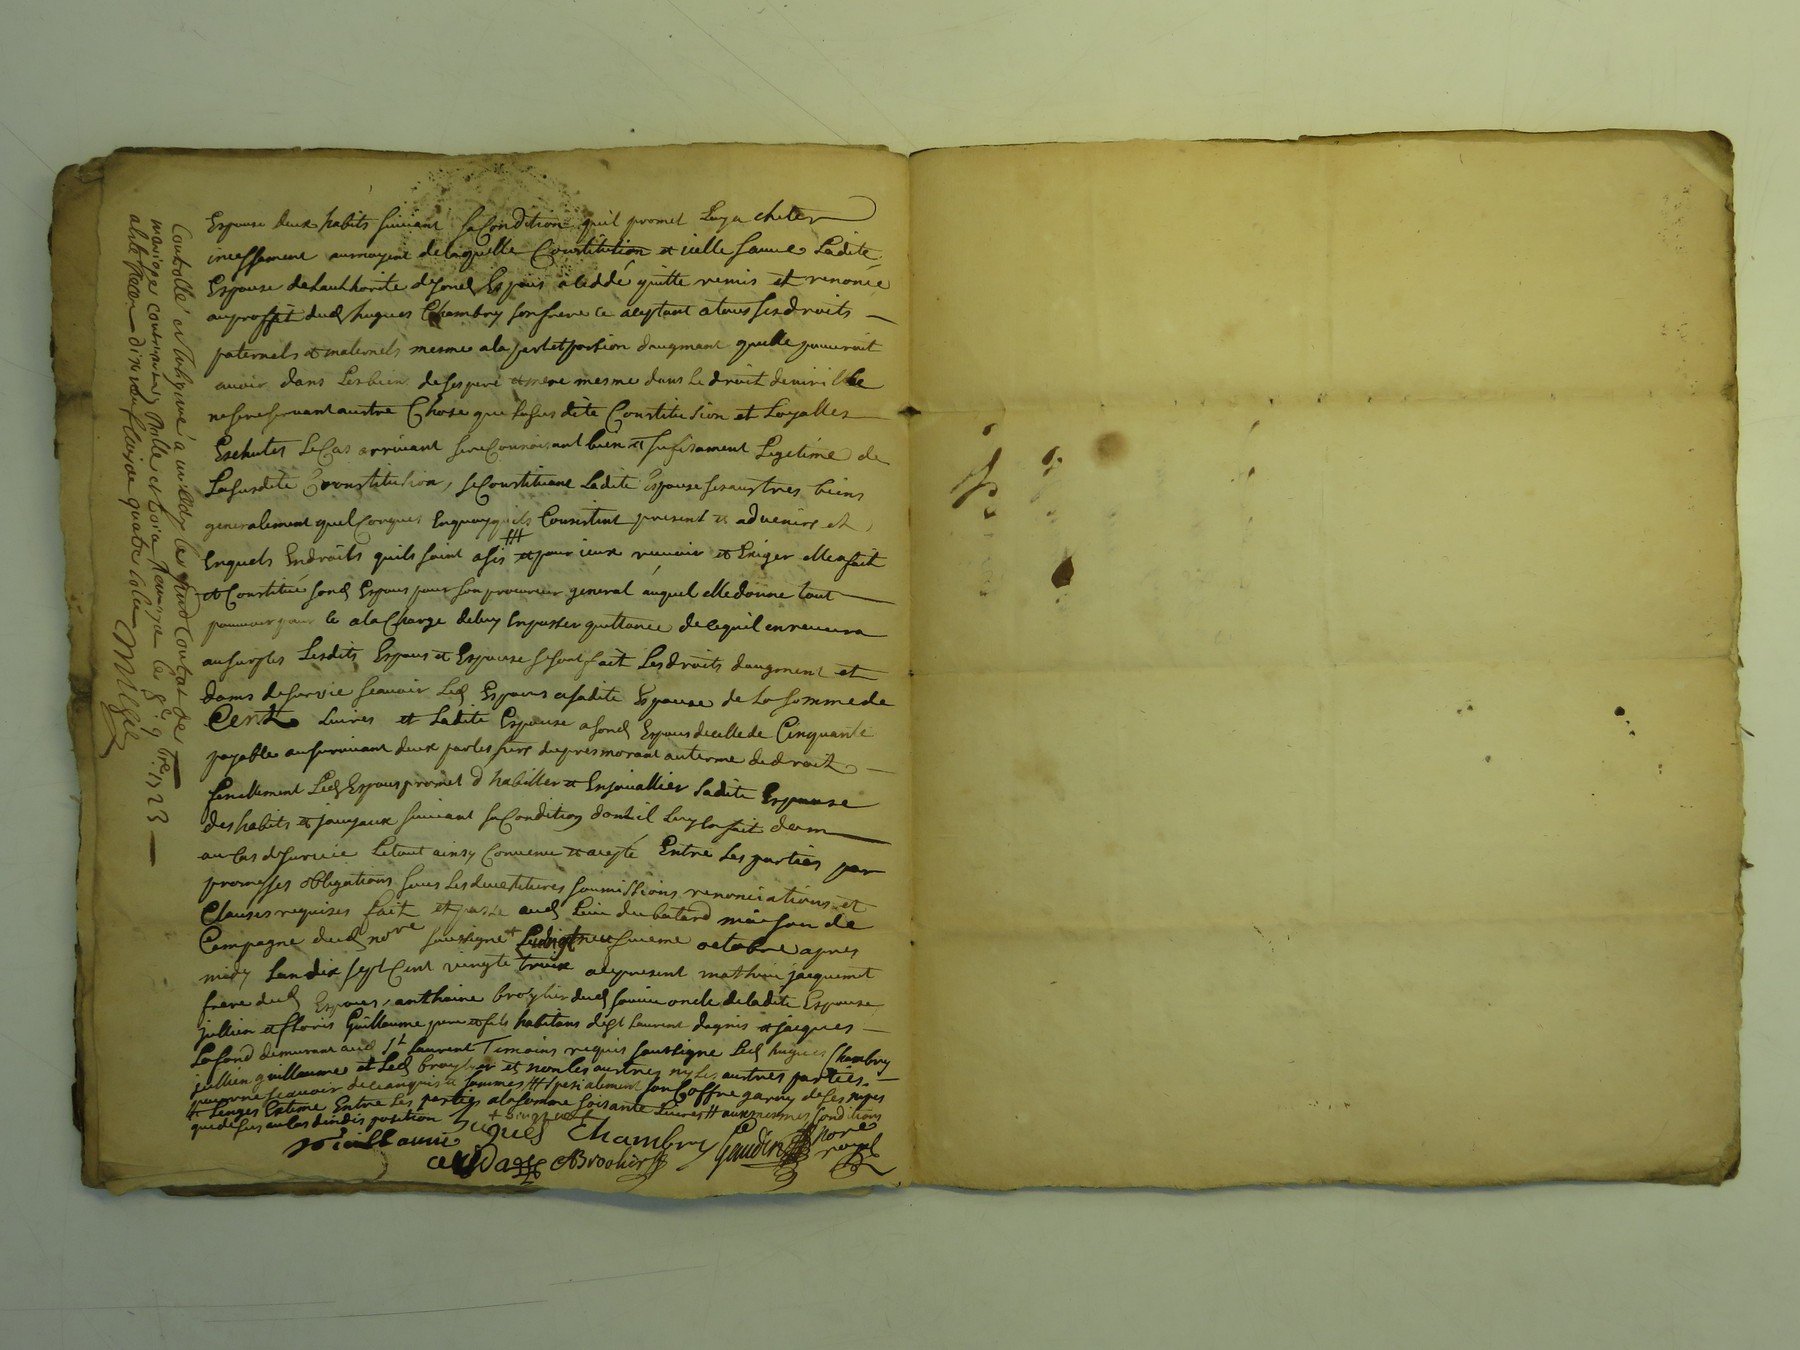 Espouse deux habits suivant sa Condition quil promet Luy acheter
incessament aumoyent delaquelle Constitution et icelle sauve Ladite
Espouse delauthorite desond Espous a ceddé quitte remis et renoncé
auproffit dud hugues Chambry son frere ce aceptant a tous ses droits
paternels et maternels mesme ala part et portion daugmant quelle pouuroit
avoir dans Les biens de ses pere et mere mesme dans le droit de
ne se reservant austre Chose que sa susdite Constitution et Loyalles
Eschutes Le Cas arrivant se reConnoissant bien et sufisament Legetimé de
La susdite Constitution, se Constituant Ladite Espouse ses austres biens
generalement quelConques Enquoy quils Consistent present et advenirs et
Enquels Endroits quils soint asis et pour iceux recevoir et Exiger elle a fait
et Constitué sond Espous pour son procureur general auquel elle donne tout
pouvoir pour ce ala Charge deluy En passer quittance de ce quil en recevra
au surplus Lesdits Espous et Espouse se sont fait Les droits daugment et
dons de survie scavoir Led Espous a sadite Espouse de La somme de
Cent Livres et Ladite Espouse a sond Espous de celle de Cinquante
payable au survivant deux par les hers du premorant au terme de droit
finallement Led Espous promet d habiller et Enjouallier sadite Espouse
des habits et jouyaux suivant sa Condition dont il Luy En fait dom
au Cas de survie Le tout ainsy Convenu et acepté Entre Les parties par
promesses obligations sous Les soumissions renonciations et
Clauses requises fait et passé aud Lieu du batard maison de
Campagne dud nore soussigne + octobre apres
midy Lan dix sept Cent vingte troix a ce present mathieu jacquemet
frere dud Espous, anthoine brochier dud oncle deladite Espouse
jullien et floris Guillaume pere et fils habitans de st Laurent dagnis et jacques
Lafond demurant aud st Laurent Temoins requis soussigne Led hugues Chambry
jullien guillaume et Led brochier et non les austres ny Les austres parties
pour ne scavoir de ce enquis et sommes ### spesialement son Coffre garny de ses nipes
et Linges Estime Entre Les parties ala somme soisante Livres # aux mesmes Conditions
que desus au Cas dindisposition +
guillaume hugues Chambry Gaudin nore
ABrochier royal
Controllé et Insignué a le pnt Contrat de
mariage contenant Mille et trois le 8e 9bre 1723
quatre sols